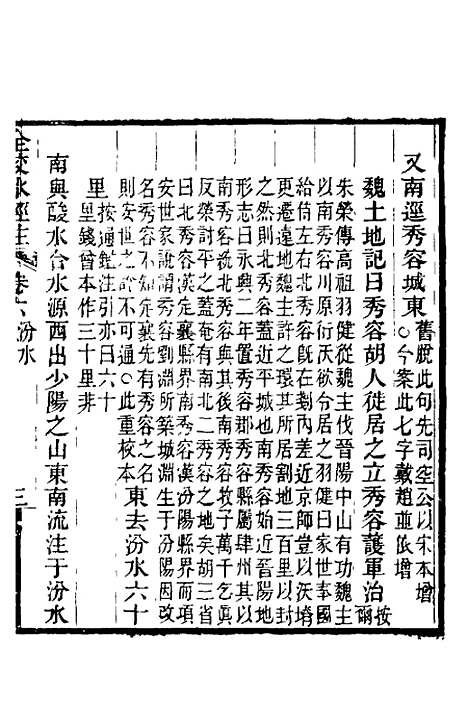 又南逕秀容城東舊脫此句先司空公以宋本增○今案此七字戴趙並依增
魏土地記曰秀容胡人徙居之立秀容護軍治按爾
朱榮傳高祖羽健從魏主伐晉陽中山有功魏主
以南秀容川原衍沃欲令居之羽健曰家世奉國
給侍左右北秀容旣在剗內差近京師豈以沃塉
更遷遠地魏主許之環其所居割地三百里以封
之然則北秀容近平城也南秀容近晉陽地
形志曰永興二年置秀容郡秀容縣屬肆州其以
南秀容統北秀容與其後南秀容牧子萬千乞眞
反榮討平之蓋奄有南北二秀容之地矣胡三省
曰北秀容漢定襄縣界南秀容漢汾陽縣界而宋
安世家說謂秀容劉淵所築城淵生于汾陽因改
名秀容是漢定襄先有秀容之名
則安世之說不可通○此重校本東去汾水六十
里按通鑑注引亦曰六十里錢曾本作三十里非
南與酸水合水源西出少陽之山東南流注于汾水
全校水經注 卷六 汾水
三